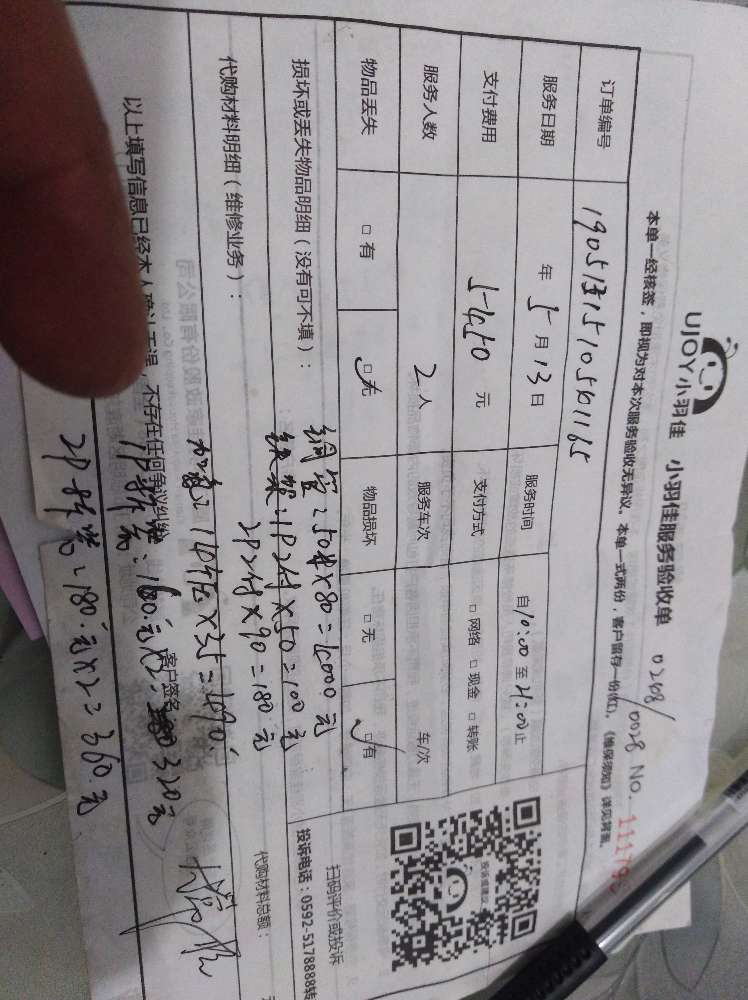 UJOY小羽佳 小羽佳服务验收单 0208/0028 No. 11179
本单一经核签，即视为对本次服务验收无异议。本单一式两份，客户留存一份(红)，《维保须知》详见背面。
订单编号
服务日期 年 5 月 13 日 服务时间 自 10:00 至 21:00 止
支付费用 5450 元 支付方式 □ 网络 □ 现金 □ 转账
服务人数 2 人 服务车次 车/次
物品丢失 □ 有 ☑ 无 物品损坏 □ 无 ☑ 有
投诉或建议
扫码评价或投诉
投诉电话：0592-5178888转
损坏或丢失物品明细（没有可不填）：
铜管：50米×80=4000元
铁架：1P2付×50=100元
2P2付×90=180元
代购材料明细（维修业务）： 代购材料总额：
加氟：14压×35=490
以上填写信息已经本人确认无误，不存在任何争议纠纷 客户签名
1P拆装：160元×2=320元
2P拆装：180元×2=360元